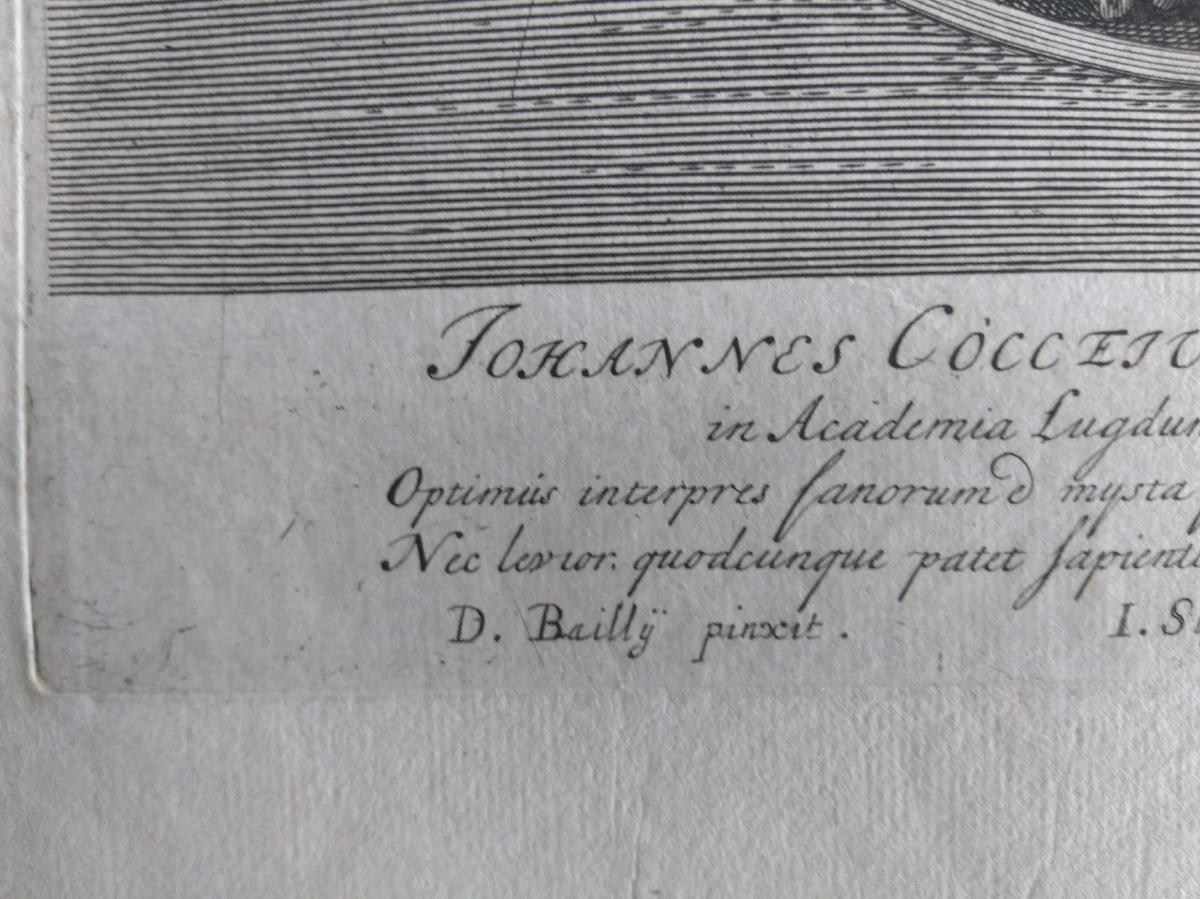 IOHANNES COCCEIU
in Academia Lugdun
Optimus interpres fanorum mysta
Nec levior. quodcunque patet sapienti
D. Baillÿ pinxit.
I. S